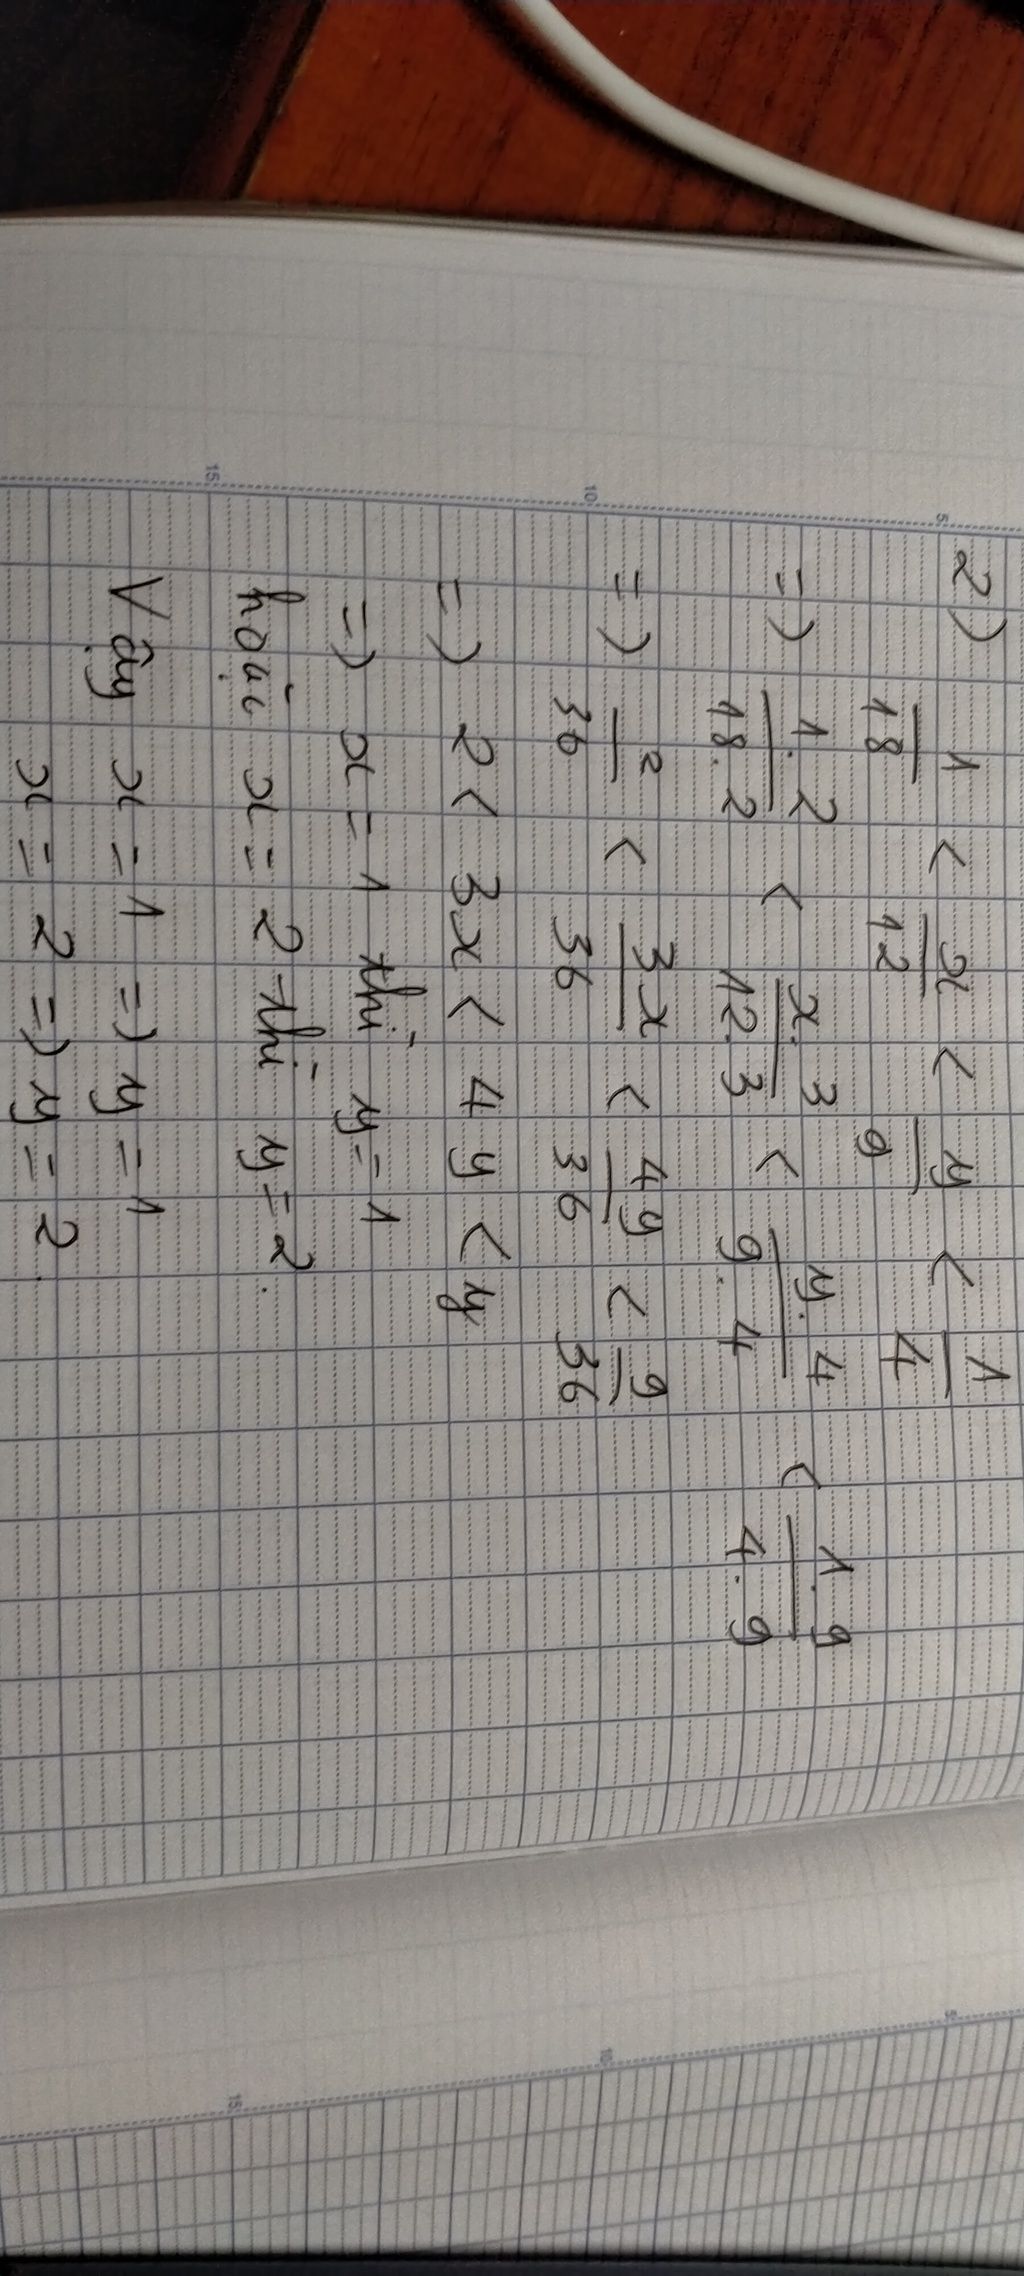 2) 1/18 < x/12 < y/9 < 1/4
=) 1.2/18.2 < x.3/12.3 < y.4/9.4 < 1.9/4.9
=) 2/36 < 3x/36 < 4y/36 < 9/36
=) 2 < 3x < 4y < y
=) x = 1 thì y = 1
hoặc x = 2 thì y = 2.
Vậy x = 1 =) y = 1
x = 2 =) y = 2.
5
10
15
5
10
15